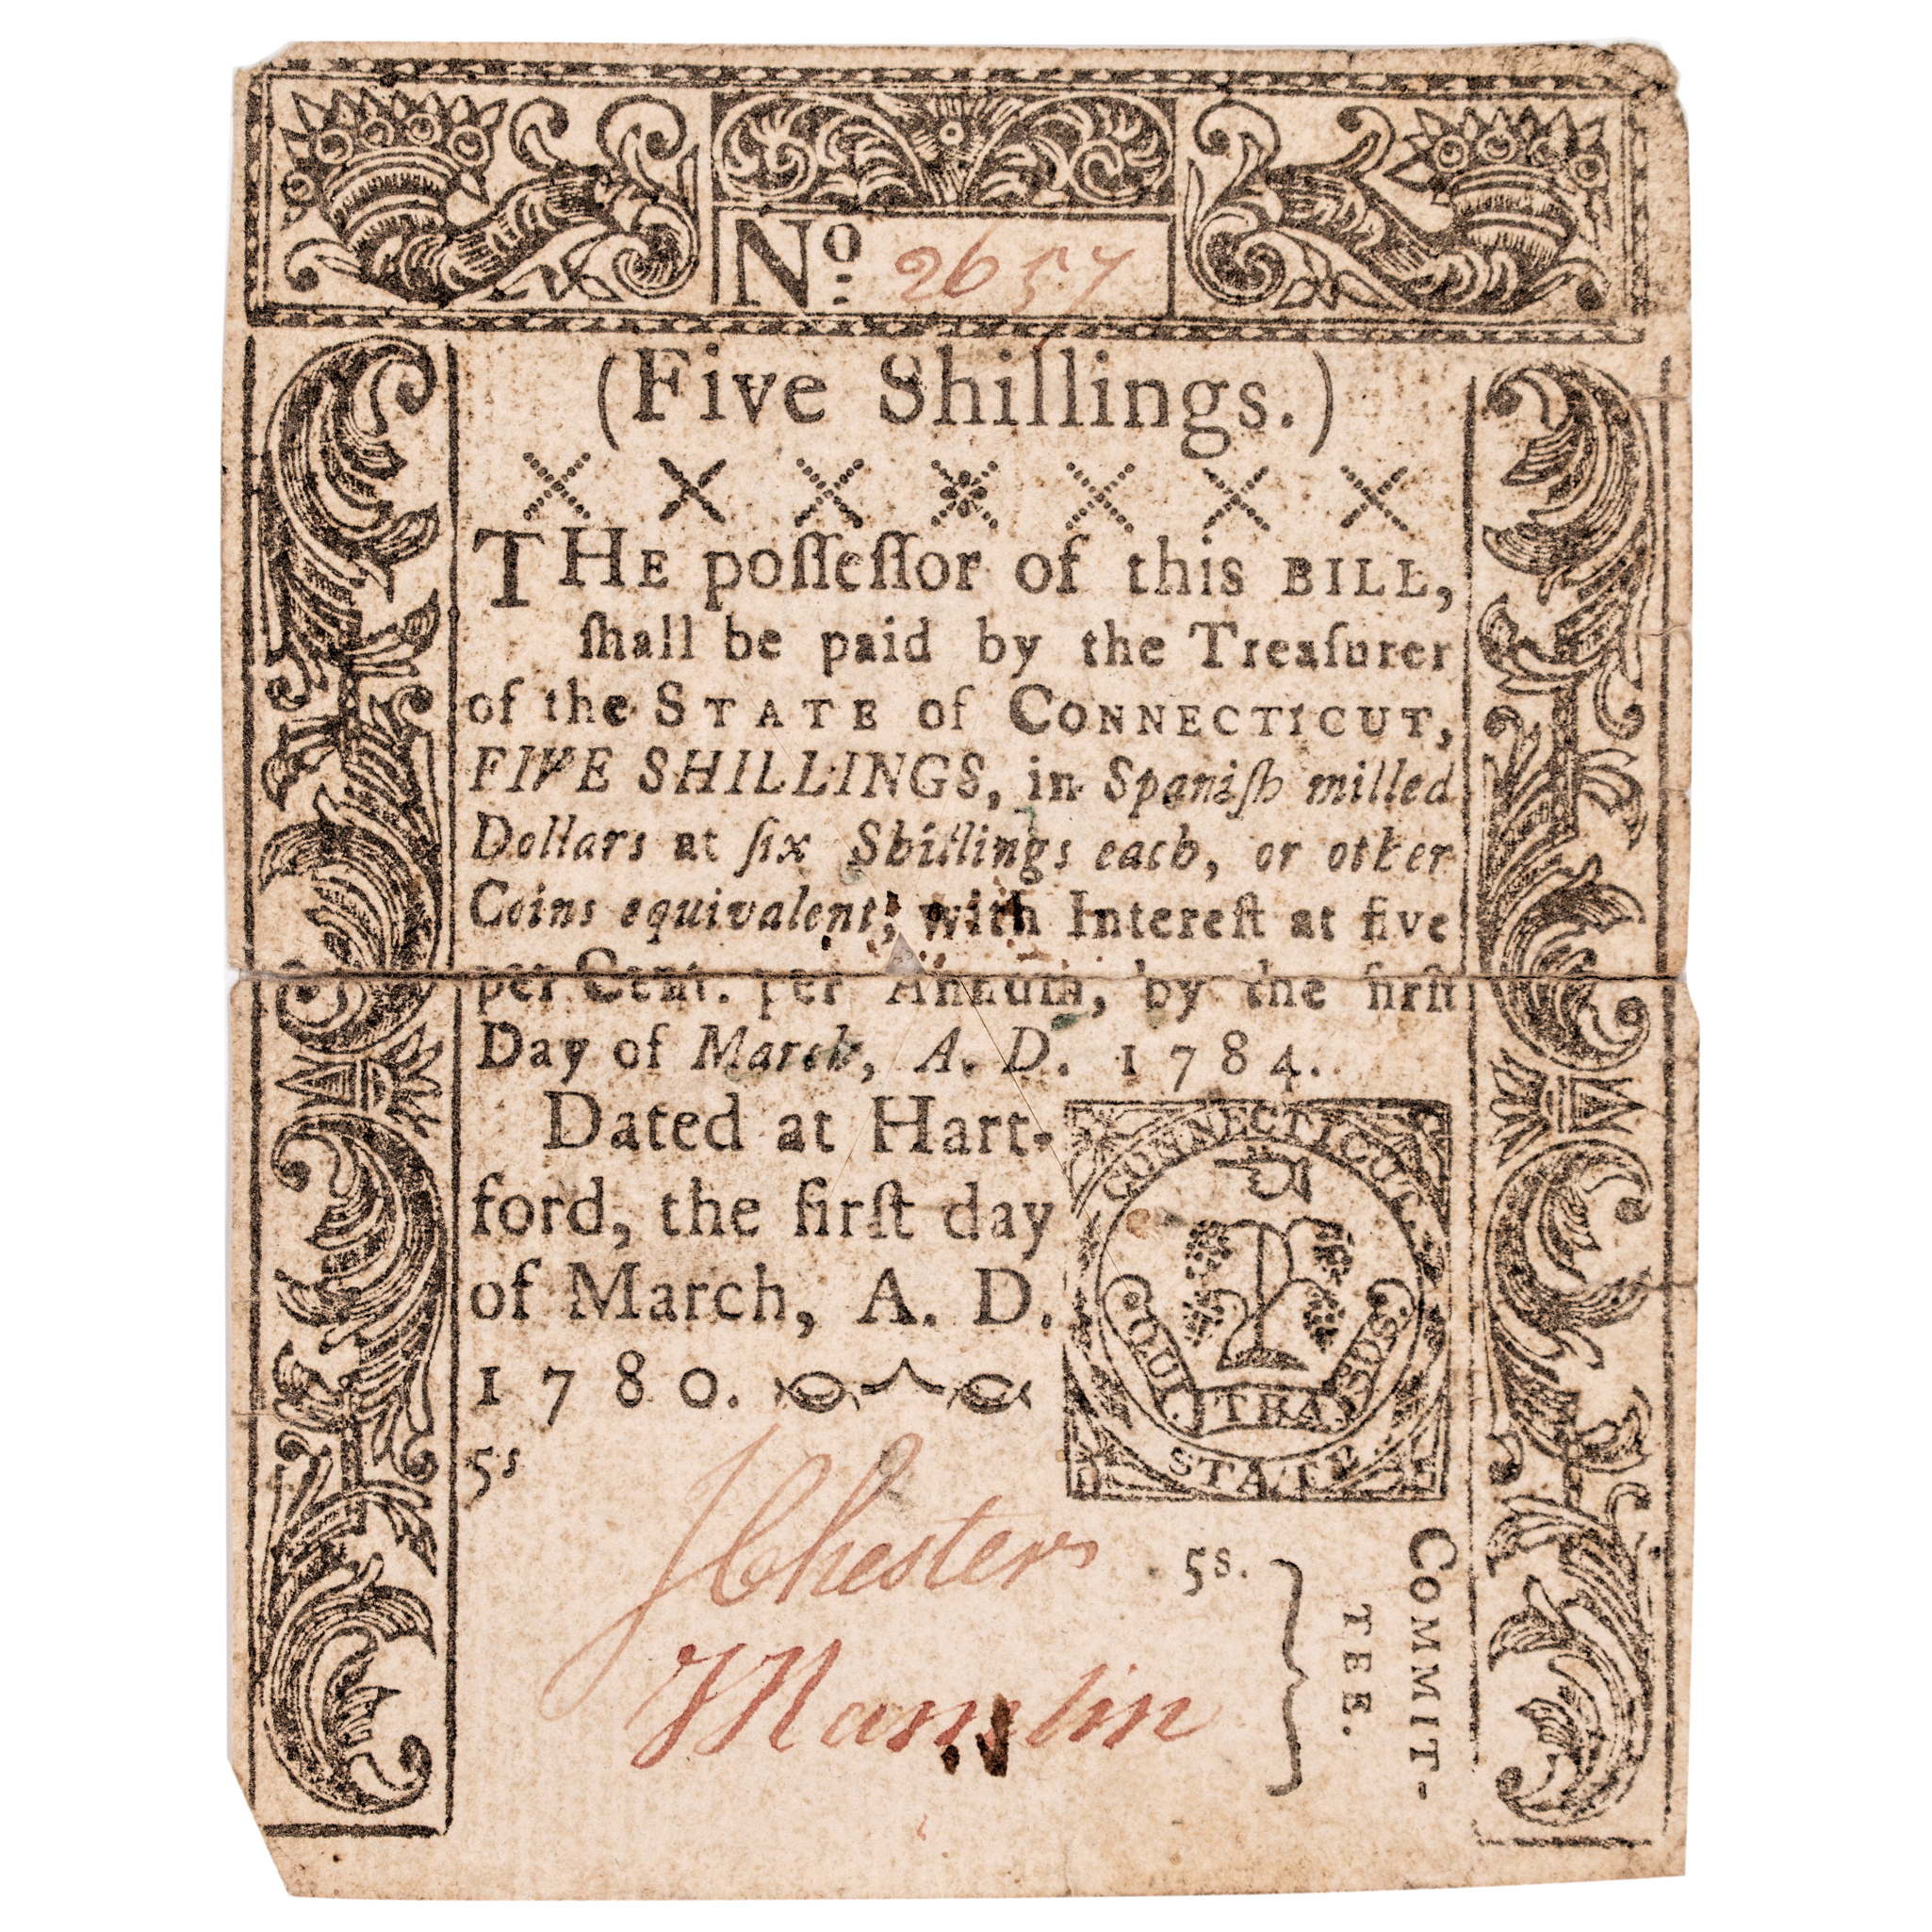 No. 2657
(Five Shillings.)
THE poſſeſſor of this BILL,
ſhall be paid by the Treaſurer
of the STATE of CONNECTICUT,
FIVE SHILLINGS, in Spaniſh milled
Dollars at ſix Shillings each, or other
Coins equivalent; with Intereſt at five
per Cent. per Annum, by the firſt
Day of March, A. D. 1784.
Dated at Hart-
ford, the firſt day
of March, A. D.
1780.
CONNECTICUT
QUI TRA. SUS.
STATE
5s
JChester
5s.
COMMIT-
TEE.
JHamlin